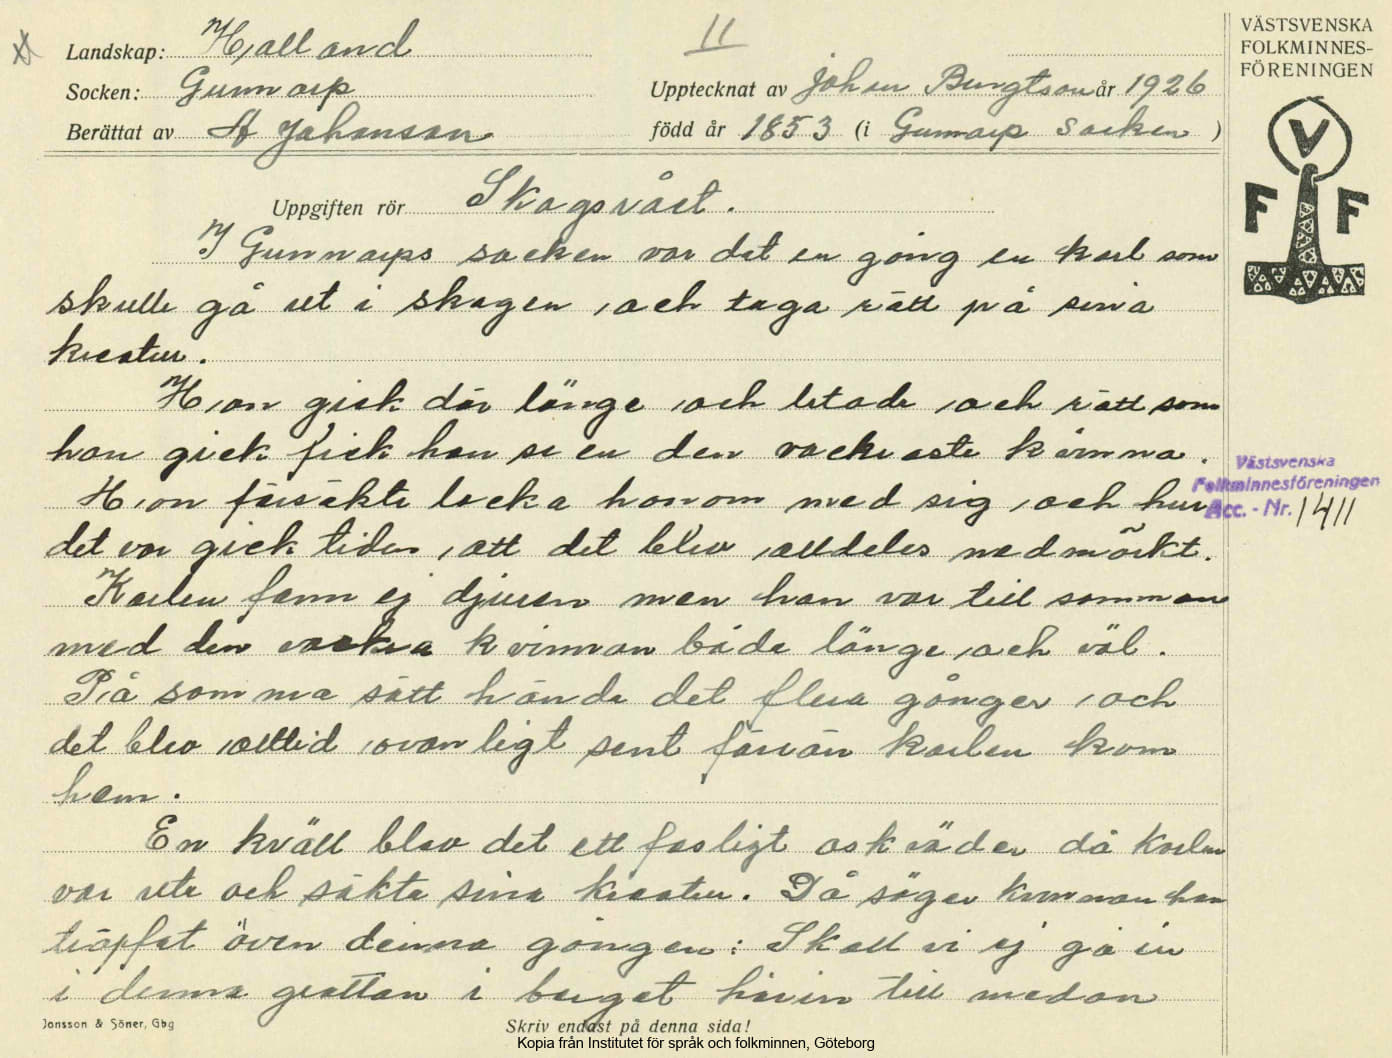 Landskap: Halland
11
VÄSTSVENSKA
FOLKMINNES-
FÖRENINGEN
Socken: Gunnarp
Upptecknat av Johan Bengtson år 1926
Berättat av A Johanson
född år 1853 (i Gunnarp socken )
V
F F
Uppgiften rör Skogsrået.
I Gunnarps socken var det en gång en karl som
skulle gå ut i skogen, och taga rätt på sina
kreatur.
Han gick där länge och letade, och rätt som
han gick fick han se en den vackraste kvinna.
Hon försökte locka honom med sig, och hur
Västsvenska
Folkminnesföreningen
Acc. - Nr. 1411
det var gick tiden, att det blev alldeles nedmörkt.
Karlen fann ej djuren men han var till samman
med den vackra kvinnan både länge och väl.
På samma sätt hände det flera gånger, och
det blev alltid ovanligt sent förrän karlen kom
hem.
En kväll blev det ett fasligt åskväder då karlen
var ute och sökte sina kreatur. Då säger kvinnan han
träffat även denna gången: Skall vi ej gå in
i denna grottan i berget härin till medan
Jonsson & Söner, Gbg
Skriv endast på denna sida!
Kopia från Institutet för språk och folkminnen, Göteborg